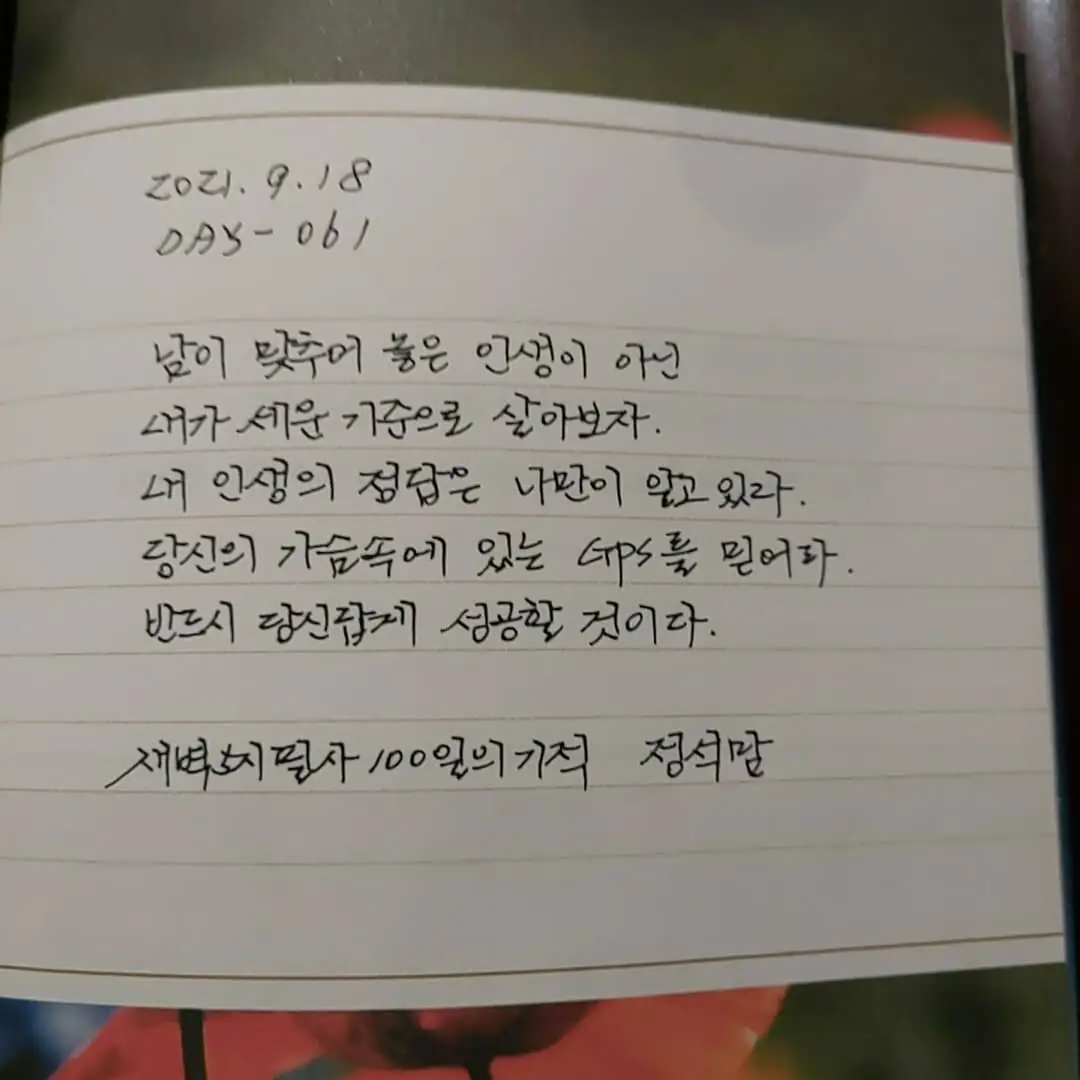 2021.9.18
DAY-061
남이 맞추어 놓은 인생이 아닌
내가 세운 기준으로 살아보자.
내 인생의 정답은 나만이 알고 있다.
당신의 가슴속에 있는 GPS를 믿어라.
반드시 당신답게 성공할 것이다.
새벽5시필사100일의기적 정석말